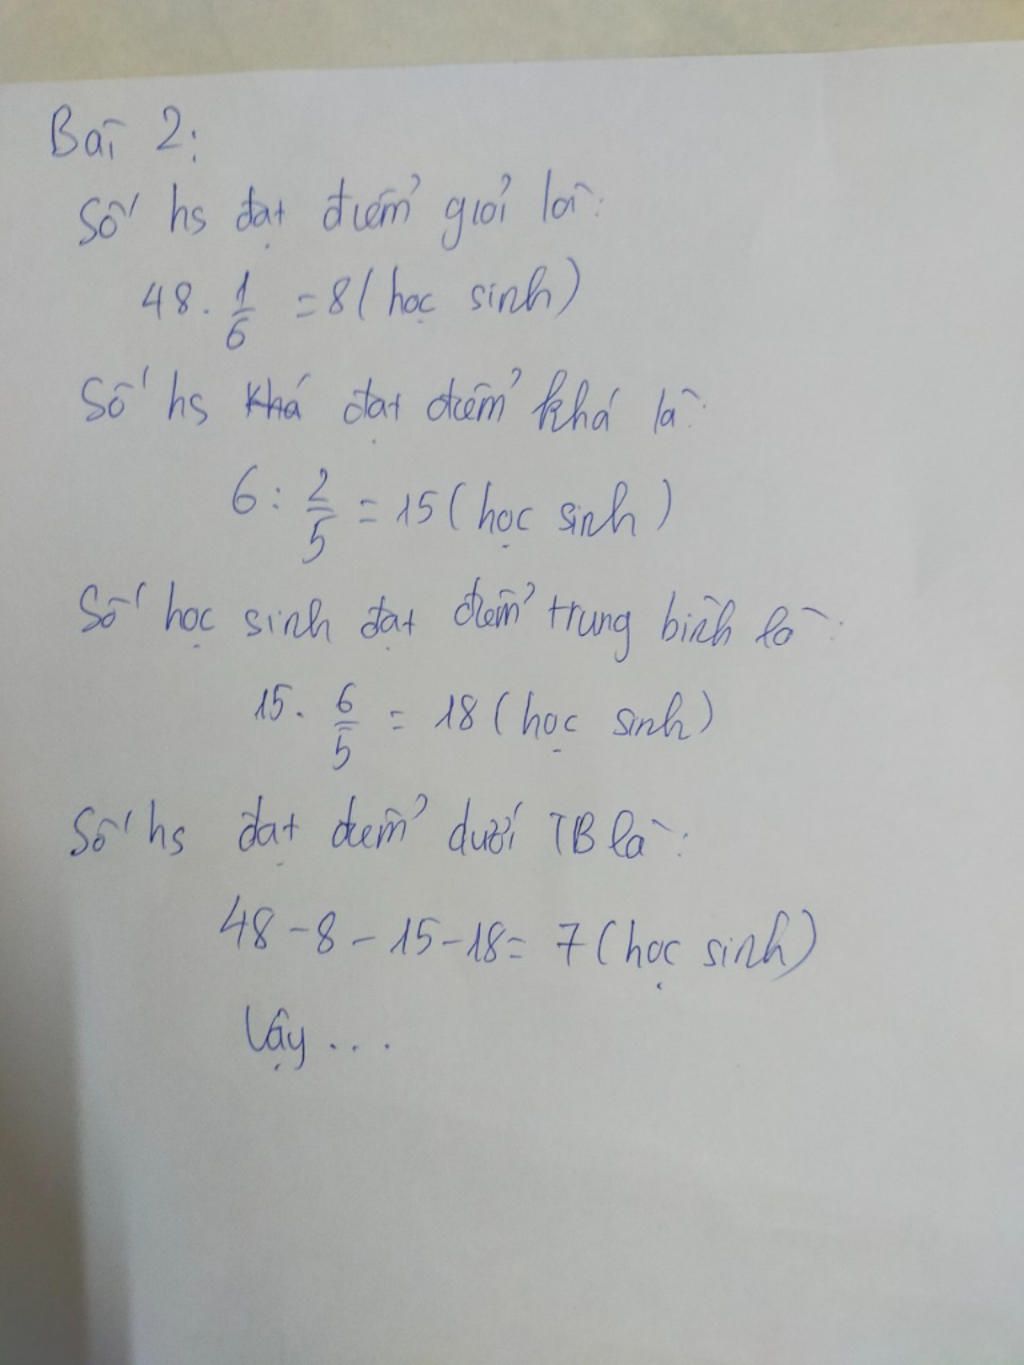 Bài 2:
Số hs đạt điểm giỏi là:
48 . 1/6 = 8 (học sinh)
Số hs khá đạt điểm khá là:
6 : 2/5 = 15 (học sinh)
Số học sinh đạt điểm trung bình là:
15 . 6/5 = 18 (học sinh)
Số hs đạt điểm dưới TB là:
48 - 8 - 15 - 18 = 7 (học sinh)
Vậy ...